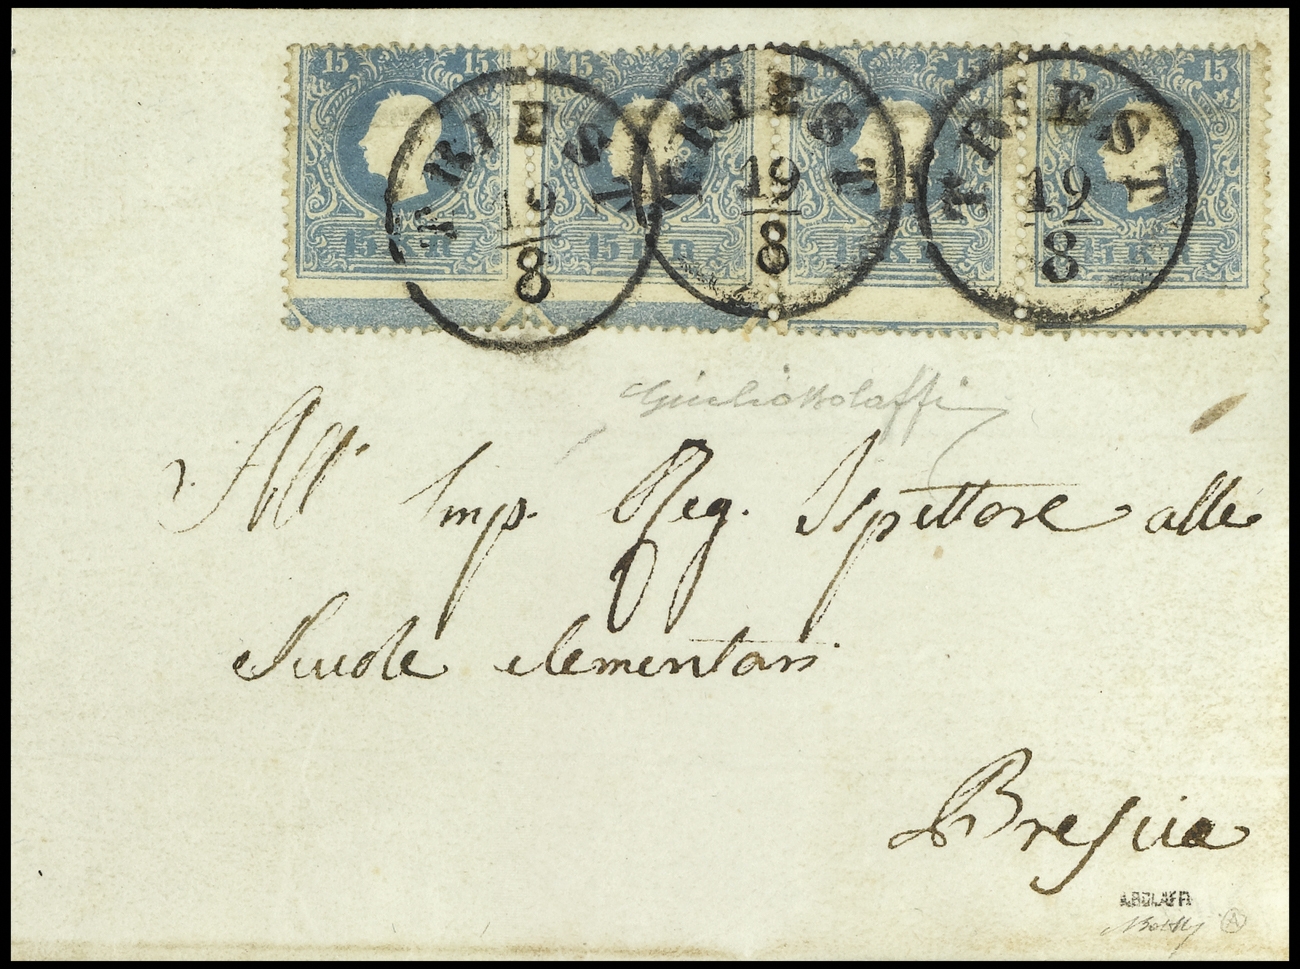 15 15 15 15 15 15 15 15
TRIEST TRIEST TRIEST
19 19 19
8 8 8
15 KR 15 KR 15 KR 15 KR
Giulio Bolaffi
All' Imp. Reg. Ispettore alle
Scuole elementari
Brescia
A.BOLAFFI
A